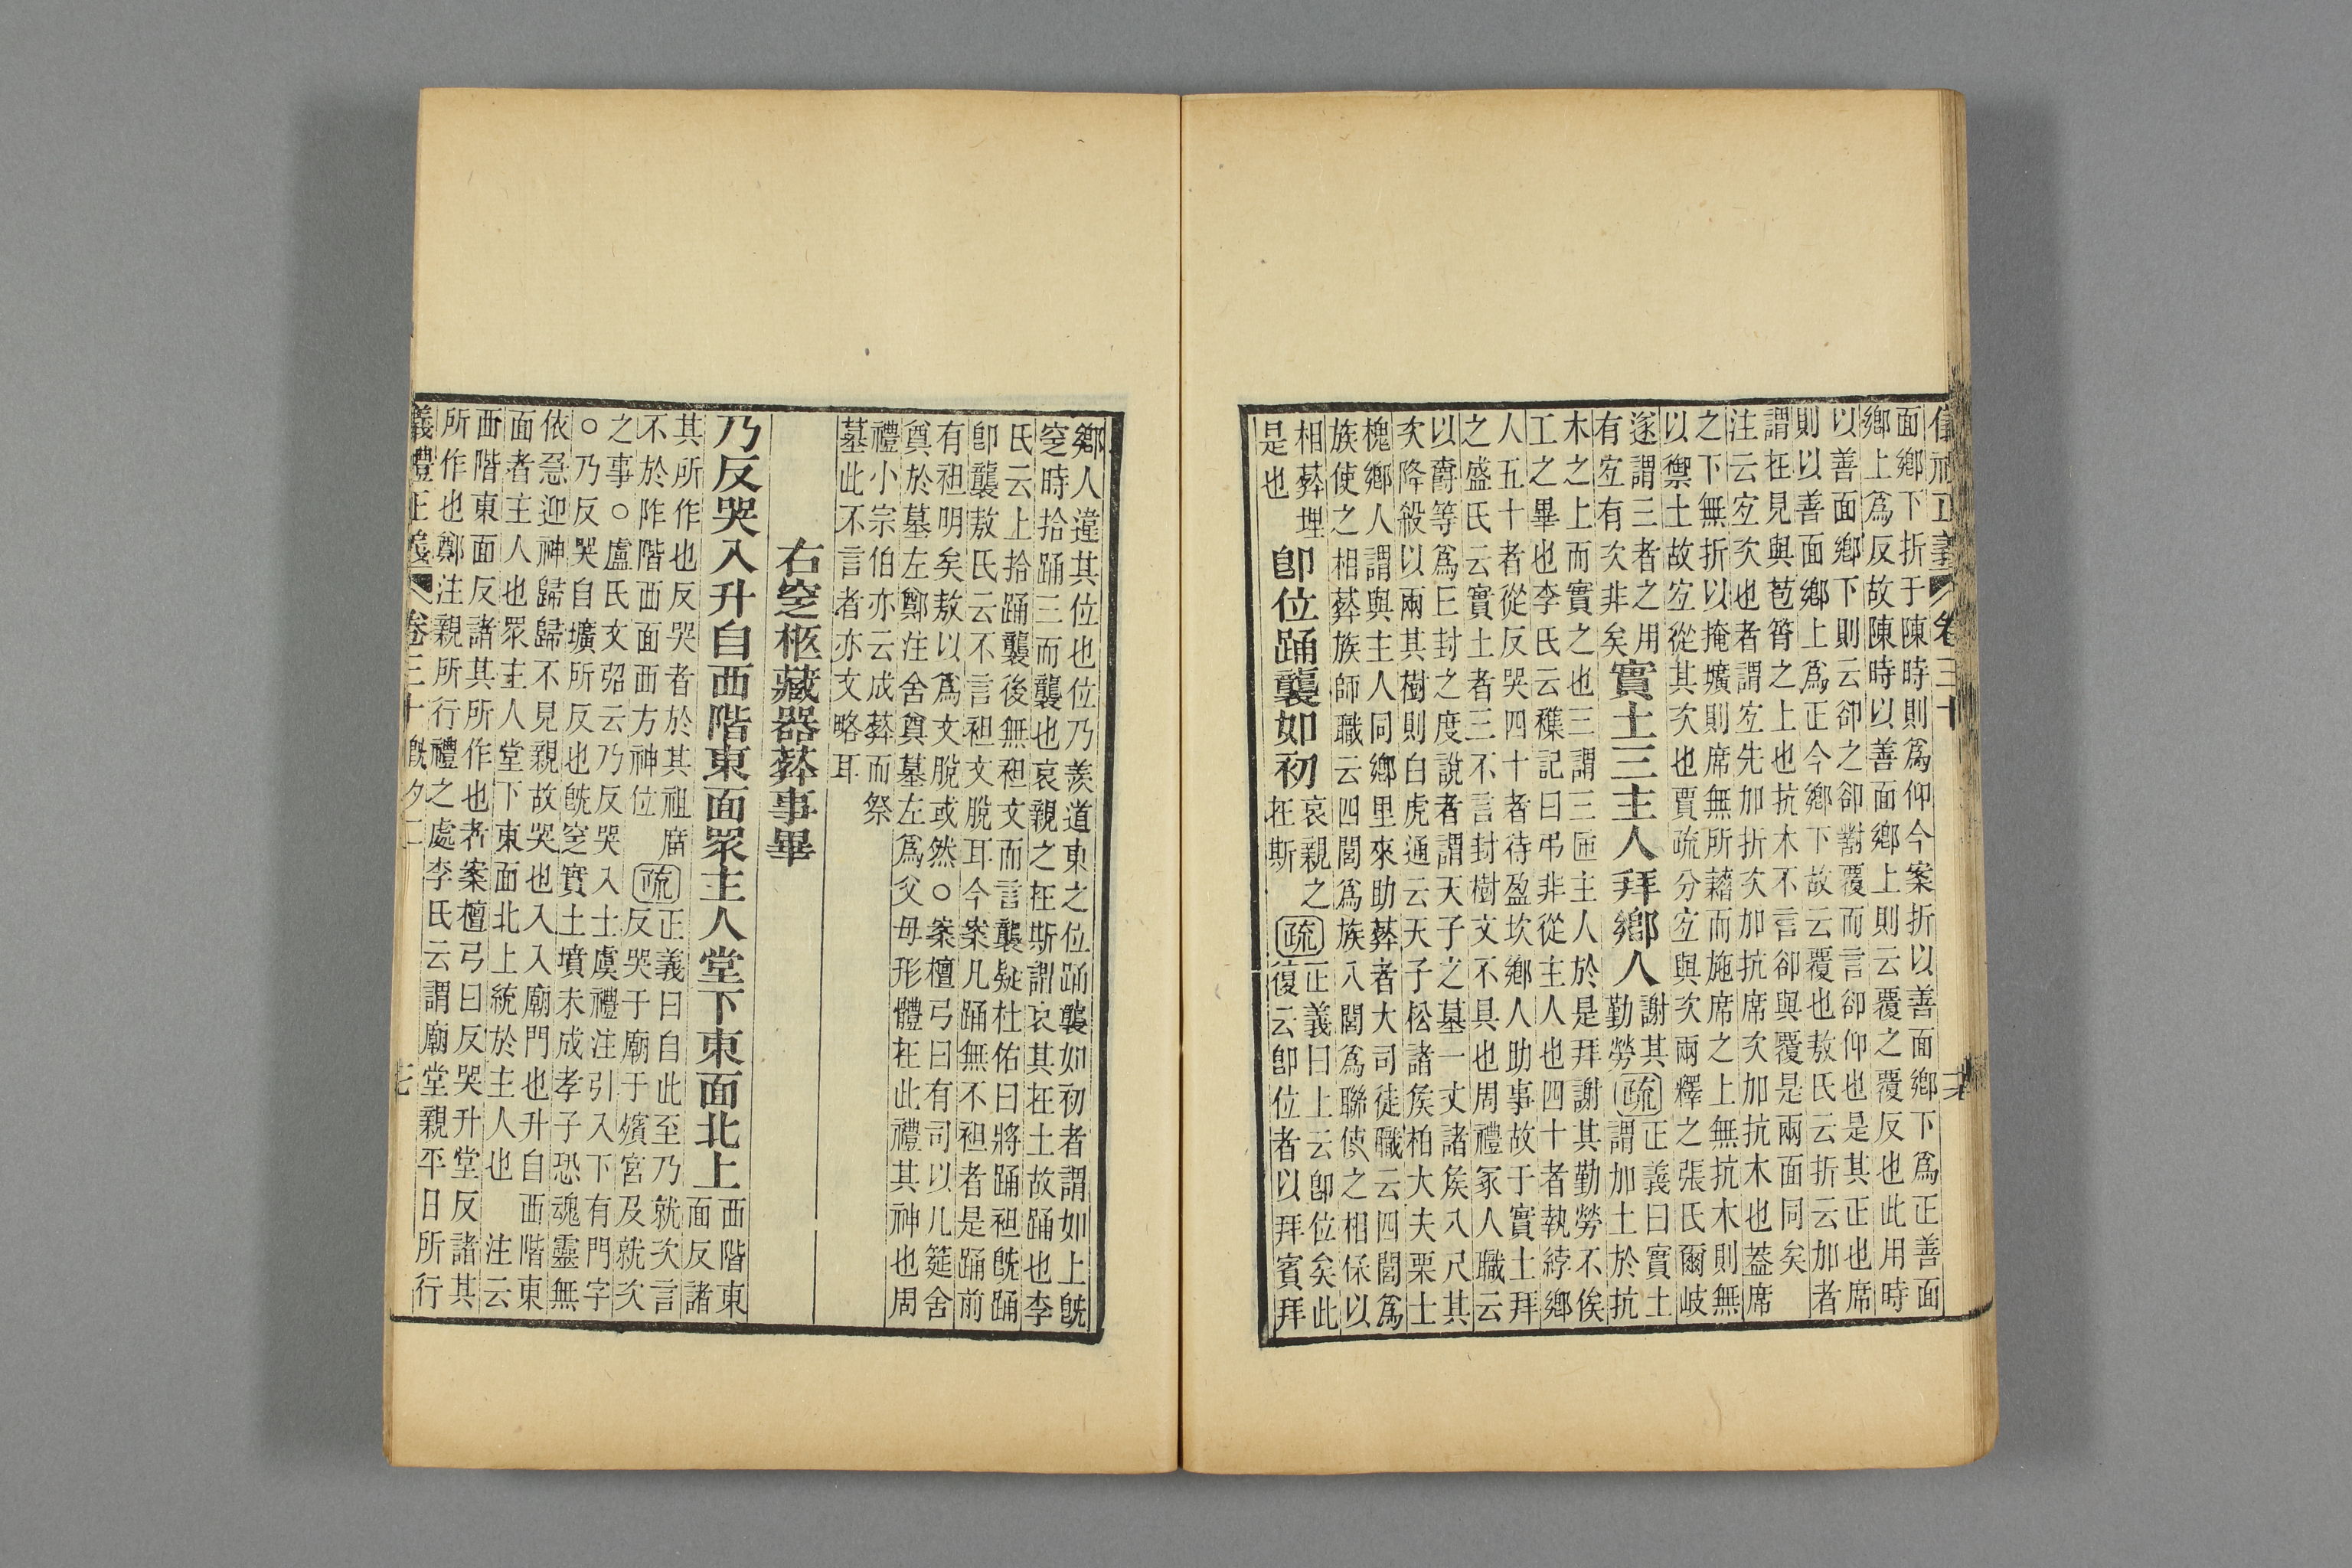 面鄉下折于陳時則爲仰今案折以善面鄉下爲正善面
鄉上爲反故陳時以善面鄉上則云覆之覆反也此用時
以善面鄉下則云卻之卻對覆而言卻仰也是其正也席
則以善面鄉上爲正今鄉下故云覆也敖氏云折云加者
謂在見與苞筲之上也抗木不言卻與覆是兩面同矣
注云宐次也者謂宐先加折次加抗席次加抗木也葢席
之下無折以掩壙則席無所藉而施席之上無抗木則無
以禦土故宐從其次也賈疏分宐與次兩釋之張氏爾岐
遂謂三者之用
有宐有次非矣
實土三主人拜鄉人
謝其
勤勞
疏
正義曰實土
謂加土於抗
木之上而實之也三謂三匝主人於是拜謝其勤勞不俟
工之畢也李氏云襍記曰弔非從主人也四十者執綍鄉
人五十者從反哭四十者待盈坎鄉人助事故于實土拜
之盛氏云實土者三不言封樹文不具也周禮冢人職云
以爵等爲丘封之度說者謂天子之墓一丈諸侯八尺其
次降殺以兩其樹則白虎通云天子松諸侯柏大夫栗士
槐鄉人謂與主人同鄉里來助葬者大司徒職云四閭爲
族使之相葬族師職云四閭爲族八閭爲聯使之相保以
相葬埋
是也
卽位踊襲如初
哀親之
在斯
疏
正義曰上云卽位矣此
復云卽位者以拜賓拜
鄉人違其位也位乃羨道東之位踊襲如初者謂如上旣
窆時拾踊三而襲也哀親之在斯謂哀其在土故踊也李
氏云上拾踊襲後無袒文而言襲疑杜佑曰將踊袒旣踊
卽襲敖氏云不言袒文脫耳今案凡踊無不袒者是踊前
有袒明矣敖以爲文脫或然○案檀弓曰有司以几筵舍
奠於墓左鄭注舍奠墓左爲父母形體在此禮其神也周
禮小宗伯亦云成葬而祭
墓此不言者亦文略耳
右窆柩藏器葬事畢
乃反哭入升自西階東面眾主人堂下東面北上
西階東
面反諸
其所作也反哭者於其祖廟
不於阼階西面西方神位
疏
正義曰自此至乃就次言
反哭于廟于殯宮及就次
之事○盧氏文弨云乃反哭入士虞禮注引入下有門字
○乃反哭自壙所反也旣窆實土墳未成孝子恐魂靈無
依急迎神歸歸不見親故哭也入入廟門也升自西階東
面者主人也眾主人堂下東面北上統於主人也 注云
西階東面反諸其所作也者案檀弓曰反哭升堂反諸其
所作也鄭注親所行禮之處李氏云謂廟堂親平日所行
儀禮正義 卷三十 旣夕二